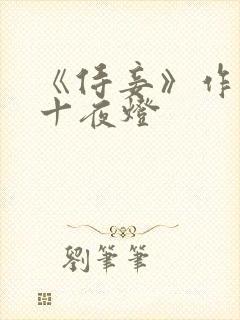 《侍妾》作
十夜燈
劉筆筆